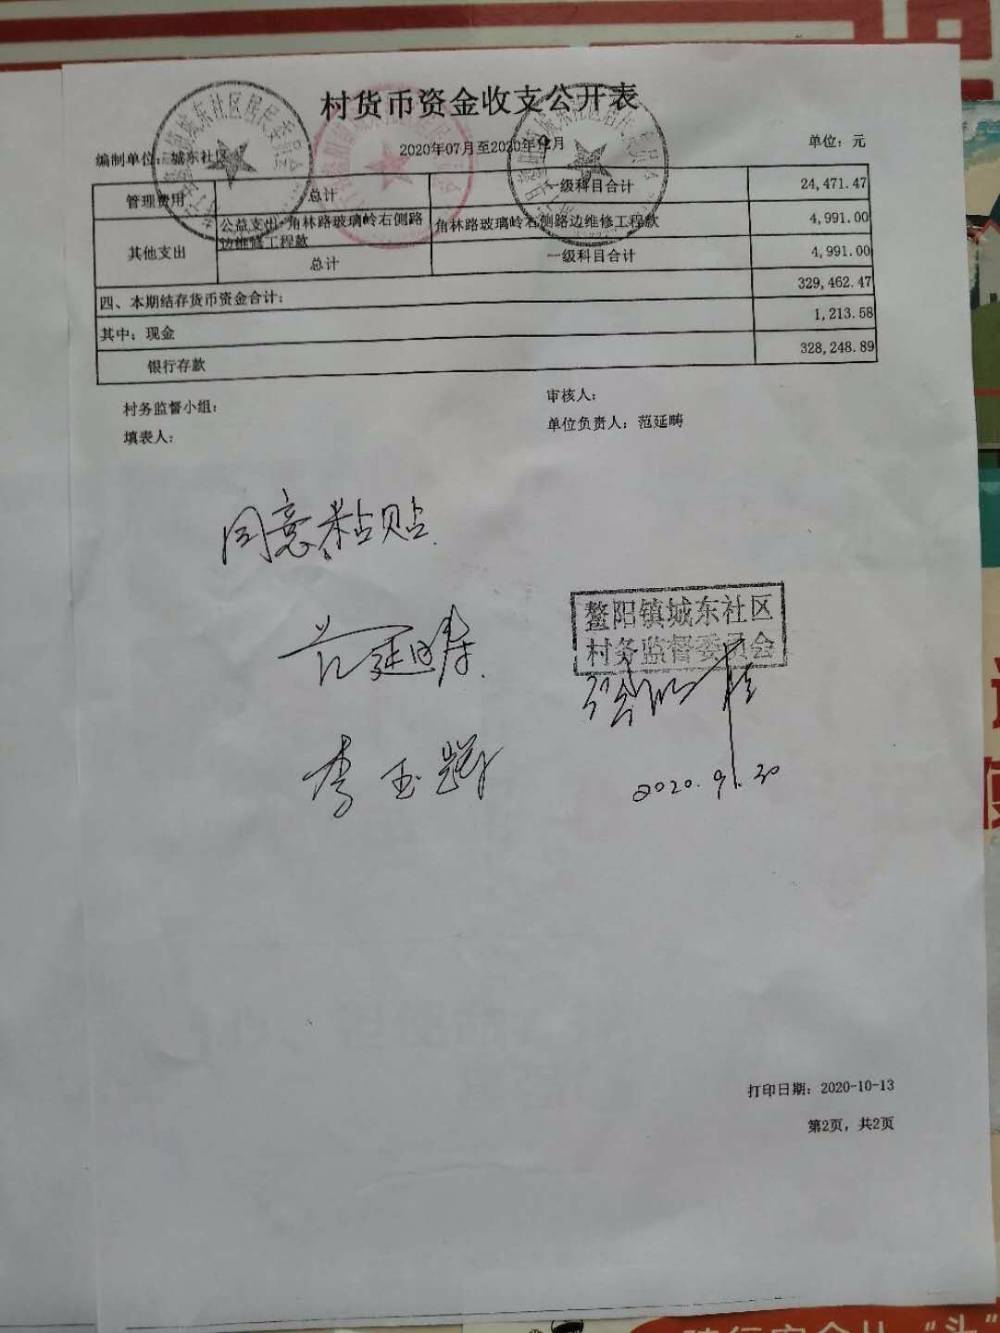 村货币资金收支公开表
2020年07月至2020年9月
编制单位：城东社区
单位：元
管理费用 总计 一级科目合计 24,471.47
其他支出 公益支出-角林路玻璃岭右侧路边维修工程款 角林路玻璃岭右侧路边维修工程款 4,991.00
总计 一级科目合计 4,991.00
四、本期结存货币资金合计： 329,462.47
其中：现金 1,213.58
银行存款 328,248.89
村务监督小组：
审核人：
填表人：
单位负责人：范延畴
同意粘贴
范延畴
鳌阳镇城东社区
村务监督委员会
李玉辉
2020.9.30
打印日期：2020-10-13
第2页，共2页